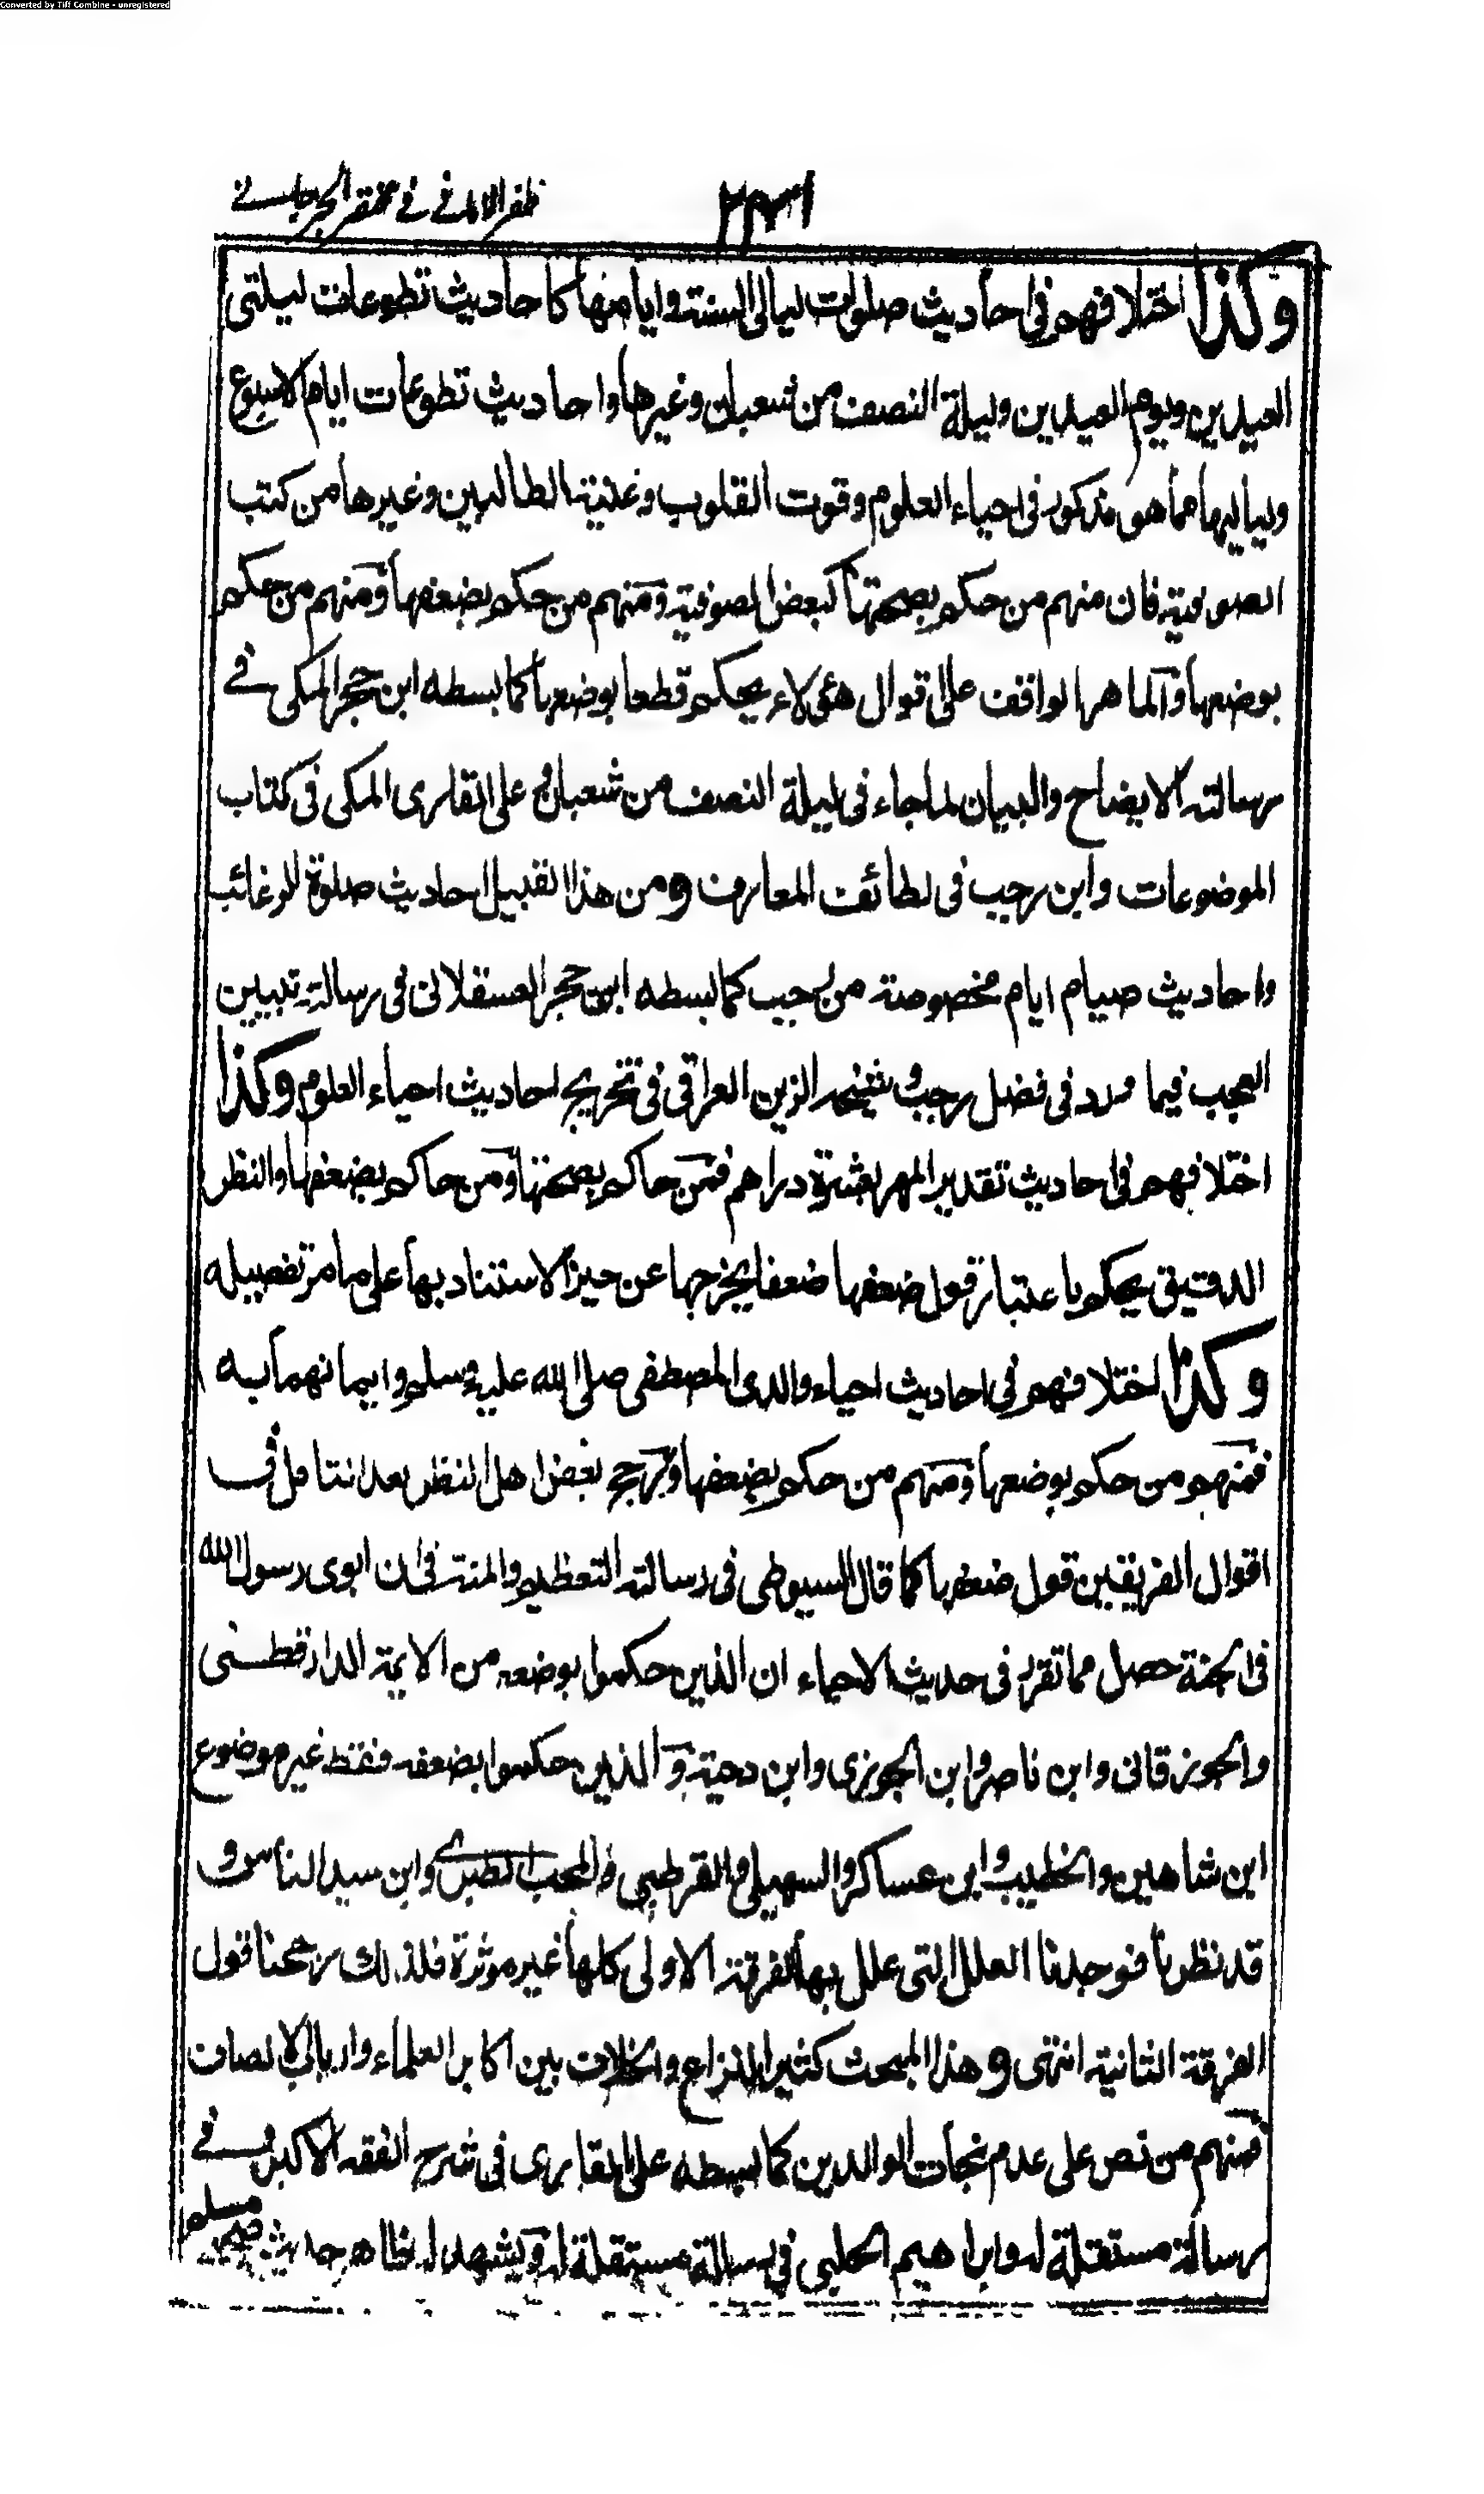 Converted by Tiff Combine - unregistered
ظفر الامانى فى مختصر الجرجانے
وكذا اختلافهم فى احاديث صلوات ليالى السنة وايامها كاحاديث تطوعات ليلتى
العيدين ويوم العيدين وليلة النصف من شعبان وغيرها واحاديث تطوعات ايام الاسبوع
ولياليها مما هو مذكور فى احياء العلوم وقوت القلوب وغنية الطالبين وغيرها من كتب
الصوفية فان منهم من حكم بصحتها كبعض الصوفية ومنهم من حكم بضعفها ومنهم من حكم
بوضعها والماهر الواقف على اقوال هؤلاء يحكم قطعا بوضعها كما بسطه ابن حجر المكى فے
رسالته الايضاح والبيان لما جاء فى ليلة النصف من شعبان وعلى القارى المكى فى كتاب
الموضوعات وابن رجب فى لطائف المعارف ومن هذا القبيل احاديث صلوة الرغائب
واحاديث صيام ايام مخصوصة من رجب كما بسطه ابن حجر العسقلانى فى رسالة تبيين
العجب فيما ورد فى فضل رجب وشيخه الزين العراقى فى تخريج احاديث احياء العلوم وكذا
اختلافهم فى احاديث تقدير المهر بعشرة دراهم فمن حاكم بصحتها ومن حاكم بضعفها والنظر
الدقيق يحكم باعتبار قول ضعفها ضعفا يخرجها عن حيز الاستناد بها على ما مر تفصيله
وكذا اختلافهم فى احاديث احياء والدى المصطفى صلى الله عليه وسلم وايمانهما به
فمنهم من حكم بوضعها ومنهم من حكم بضعفها ورجح بعض اهل النظر بعد التامل فے
اقوال الفريقين قول ضعفها كما قال السيوطى فى رسالته التعظيم والمنة فى ان ابوى رسول الله
فى الجنة حصل مما تقرر فى حديث الاحياء ان الذين حكموا بوضعه من الايمة الدارقطنى
والجوزقانى وابن ناصر وابن الجوزى وابن دحية والذين حكموا بضعفه فقط غير موضوع
ابن شاهين والخطيب وابن عساكر والسهيلى والقرطبى والمحب الطبرى وابن سيد الناس و
قد نظرنا فوجدنا العلل التى علل بها الفرقة الاولى كلها غير موثرة فلذلك رجحنا قول
الفرقة الثانية انتهى وهذا المبحث كثير النزاع والخلاف بين اكابر العلماء وارباب الانصاف
فمنهم من نص على عدم نجات الوالدين كما بسطه على القارى فى شرح الفقه الاكبر وفے
رسالة مستقلة له وابراهيم الحلبى فى رسالة مستقلة له ويشهد له ظاهر حديث صحيح مسلم